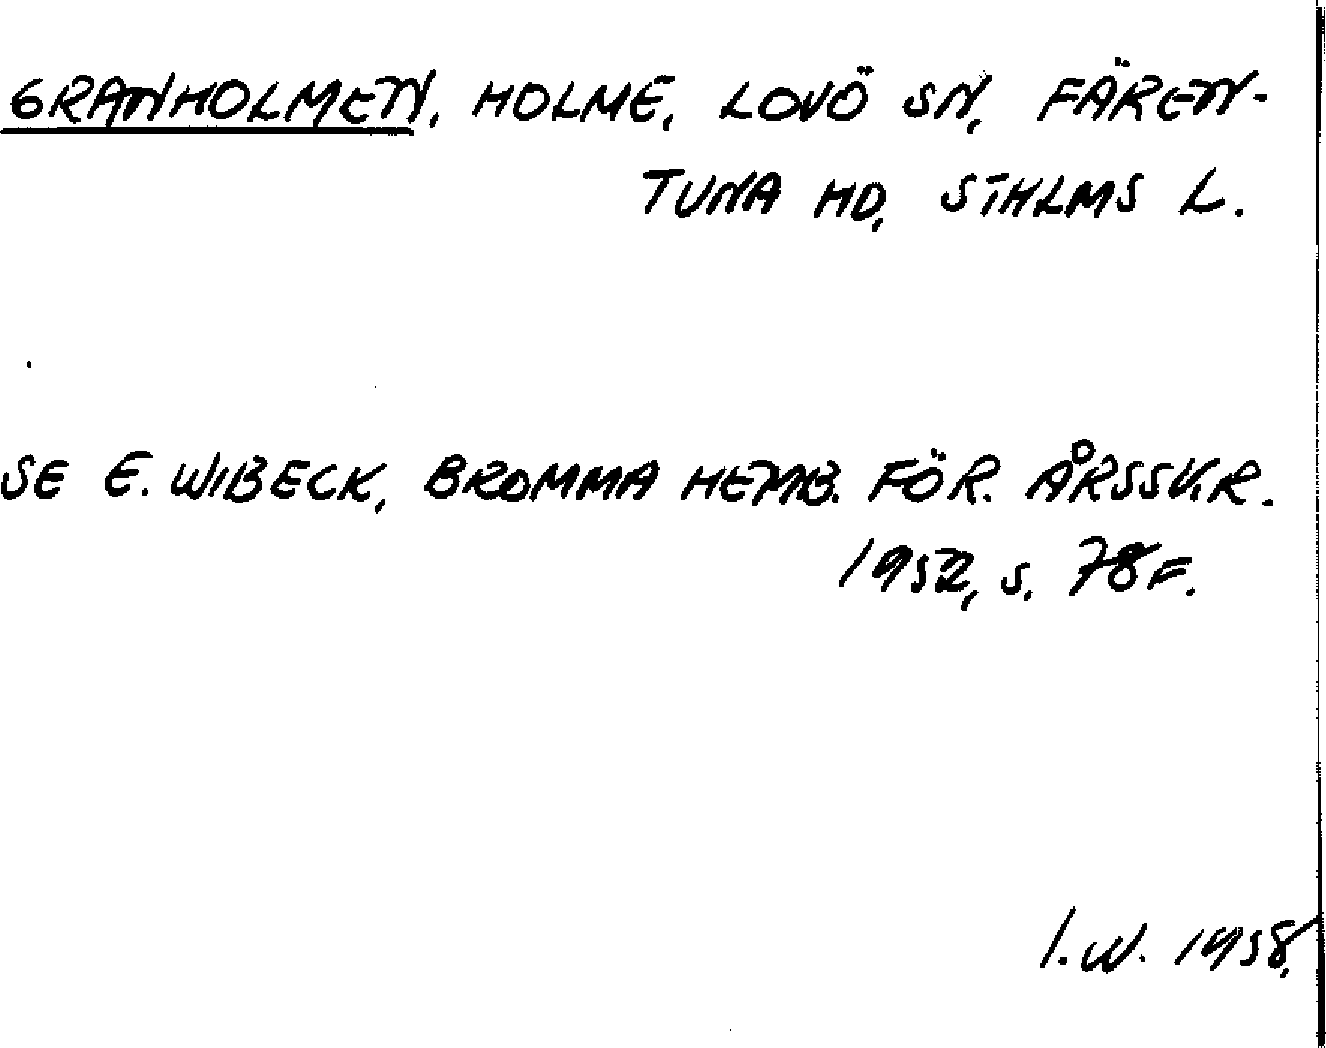 GRANHOLMEN, HOLME, LOVÖ SN, FÄREN-
TUNA HD, STHLMS L.
SE E. WIBECK, BROMMA HEMB. FÖR. ÅRSSKR.
1952, S. 78 F.
I.W. 1958.